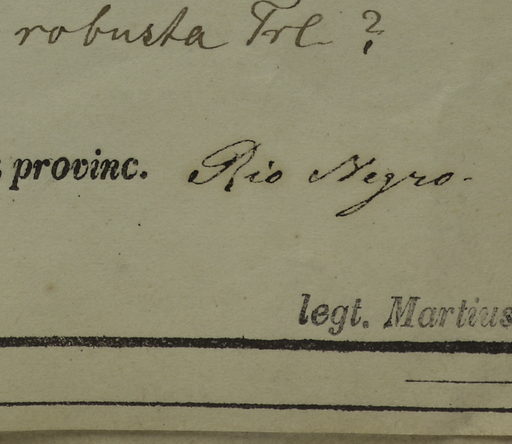 robusta Trl ?
provinc. Rio Negro.
legt. Martius